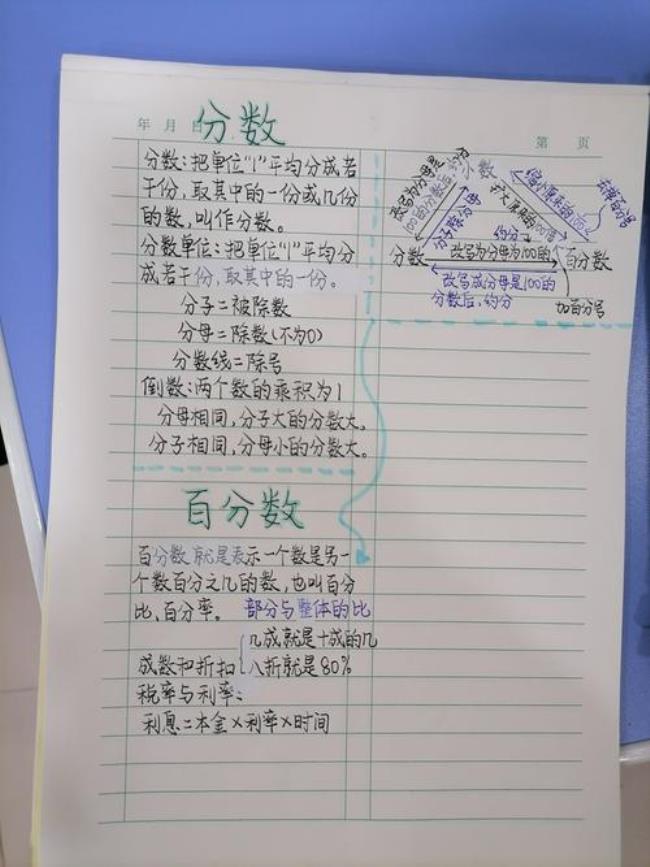 年 月 日
分数
第 页
分数:把单位“1”平均分成若
干份,取其中的一份或几份
的数,叫作分数。
分数单位:把单位“1”平均分
成若干份,取其中的一份。
分子=被除数
分母=除数(不为0)
分数线=除号
倒数:两个数的乘积为1
分母相同,分子大的分数大。
分子相同,分母小的分数大。
小数
改写为分母是
100的分数后
分子除
缩小原来的
扩大原来的100倍
去掉百分号
约分
分数
改写为分母为100的
百分数
改写成分母是100的
分数后,约分
加百分号
百分数
百分数就是表示一个数是另一
个数百分之几的数,也叫百分
比、百分率。
部分与整体的比
成数和折扣
几成就是十成的几
八折就是80%
税率与利率:
利息=本金×利率×时间